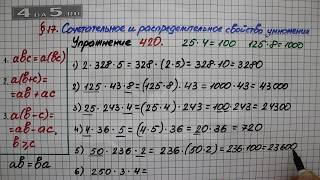 4 ДА 5.РФ
§17. Сочетательное и распределительное свойство умножения
Упражнение 420. 25·4=100 125·8=1000
1. abc=a(bc)
2. a(b+c)=
=ab+ac
3. a(b-c)=
=ab-ac,
b≥c
ab=ba
1) 2·328·5 = 328·(2·5) = 328·10 = 3280
2) 125·43·8 = (125·8)·43 = 1000·43 = 43000
3) 25·243·4 = (25·4)·243 = 100·243 = 24300
4) 4·36·5 = (4·5)·36 = 20·36 = 720
5) 50·236·2 = 236·(50·2) = 236·100 = 23600
6) 250·3·4 =